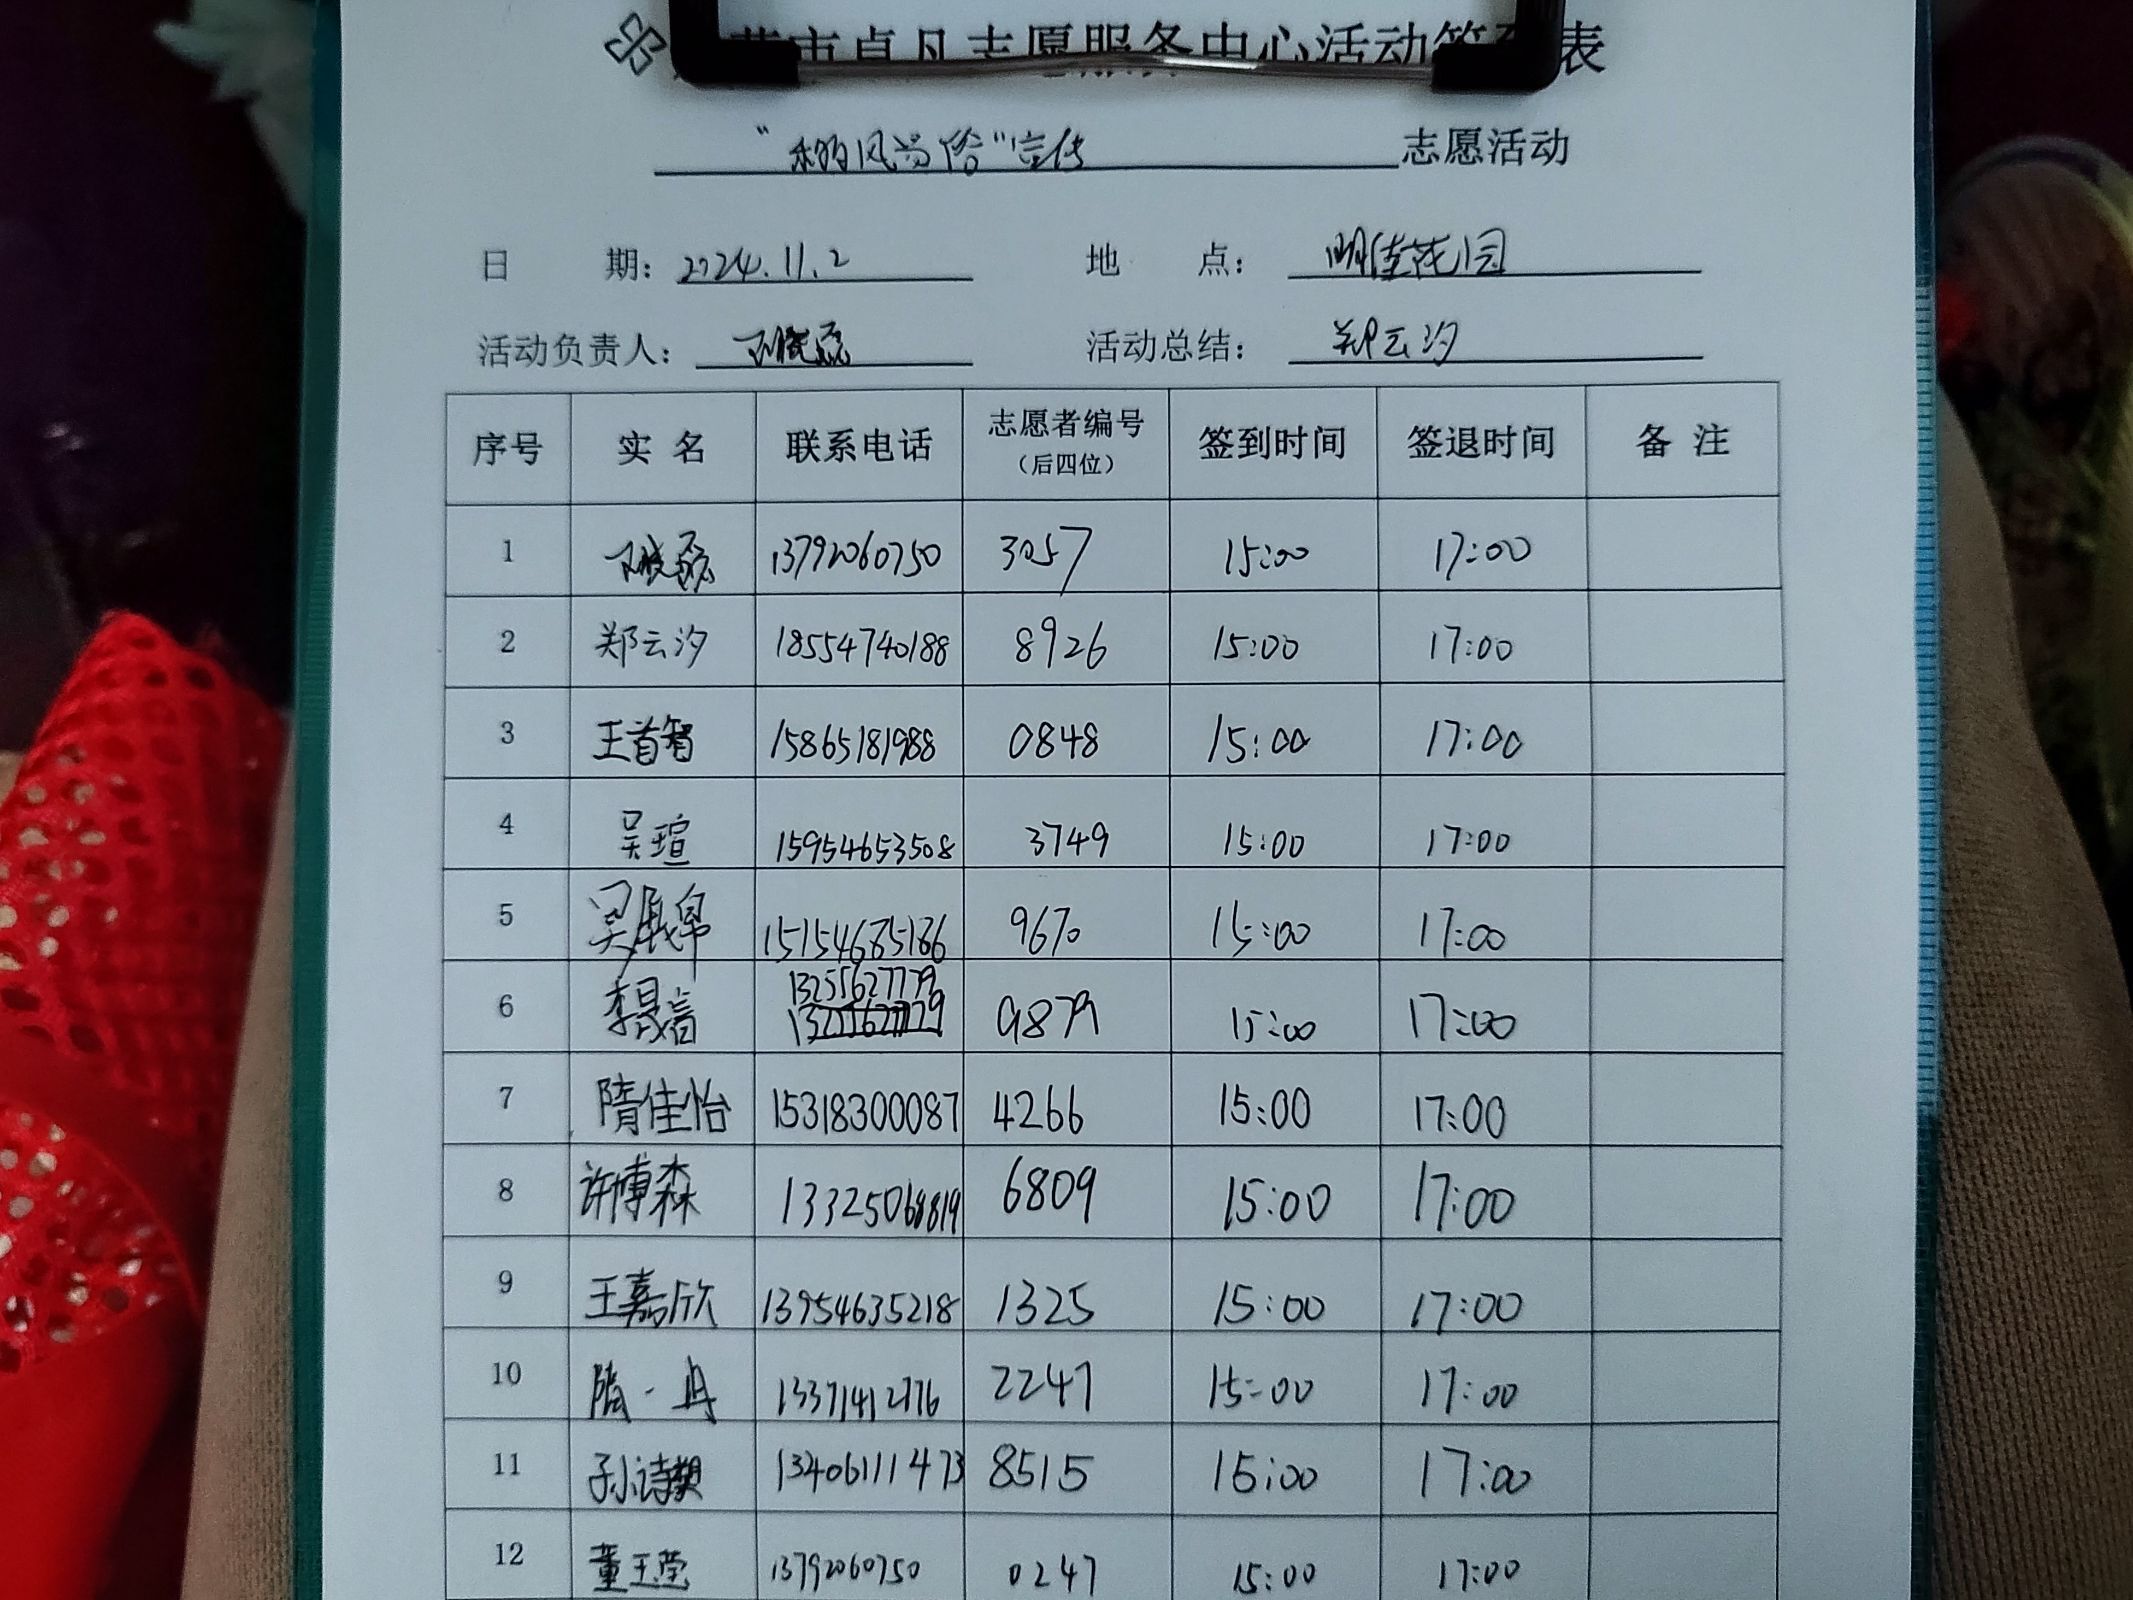 市卓凡志愿服务中心活动签到表
"移风易俗"宣传 志愿活动
日 期： 2024.11.2 地 点： 明佳花园
活动负责人： 活动总结： 郑云汐
序号 实 名 联系电话 志愿者编号（后四位） 签到时间 签退时间 备 注
1 13792060750 3057 15:00 17:00
2 郑云汐 18554740188 8926 15:00 17:00
3 王首智 15865181988 0848 15:00 17:00
4 吴瑄 15954653508 3749 15:00 17:00
5 吴 15154685186 9670 15:00 17:00
6 李晟 13255627779 9879 15:00 17:00
7 隋佳怡 15318300087 4266 15:00 17:00
8 许博森 13325068819 6809 15:00 17:00
9 王嘉欣 13954635218 1325 15:00 17:00
10 隋一冉 13371412776 2247 15:00 17:00
11 孙诗 13406111473 8515 15:00 17:00
12 董玉莹 13792060750 0247 15:00 17:00